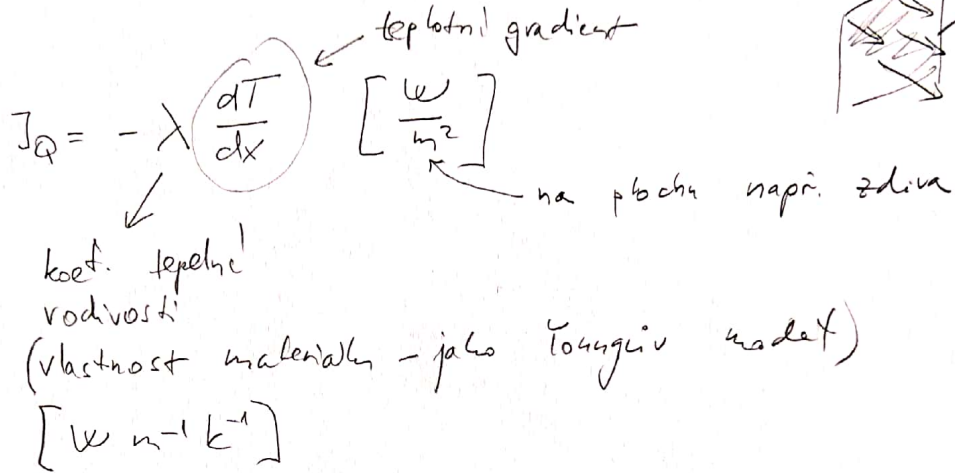 teplotní gradient
J_Q = - λ dT/dx [W/m²]
na plochu např. zdiva
koef. tepelné
vodivosti
(vlastnost materiálu - jako Youngův model)
[W m⁻¹ k⁻¹]